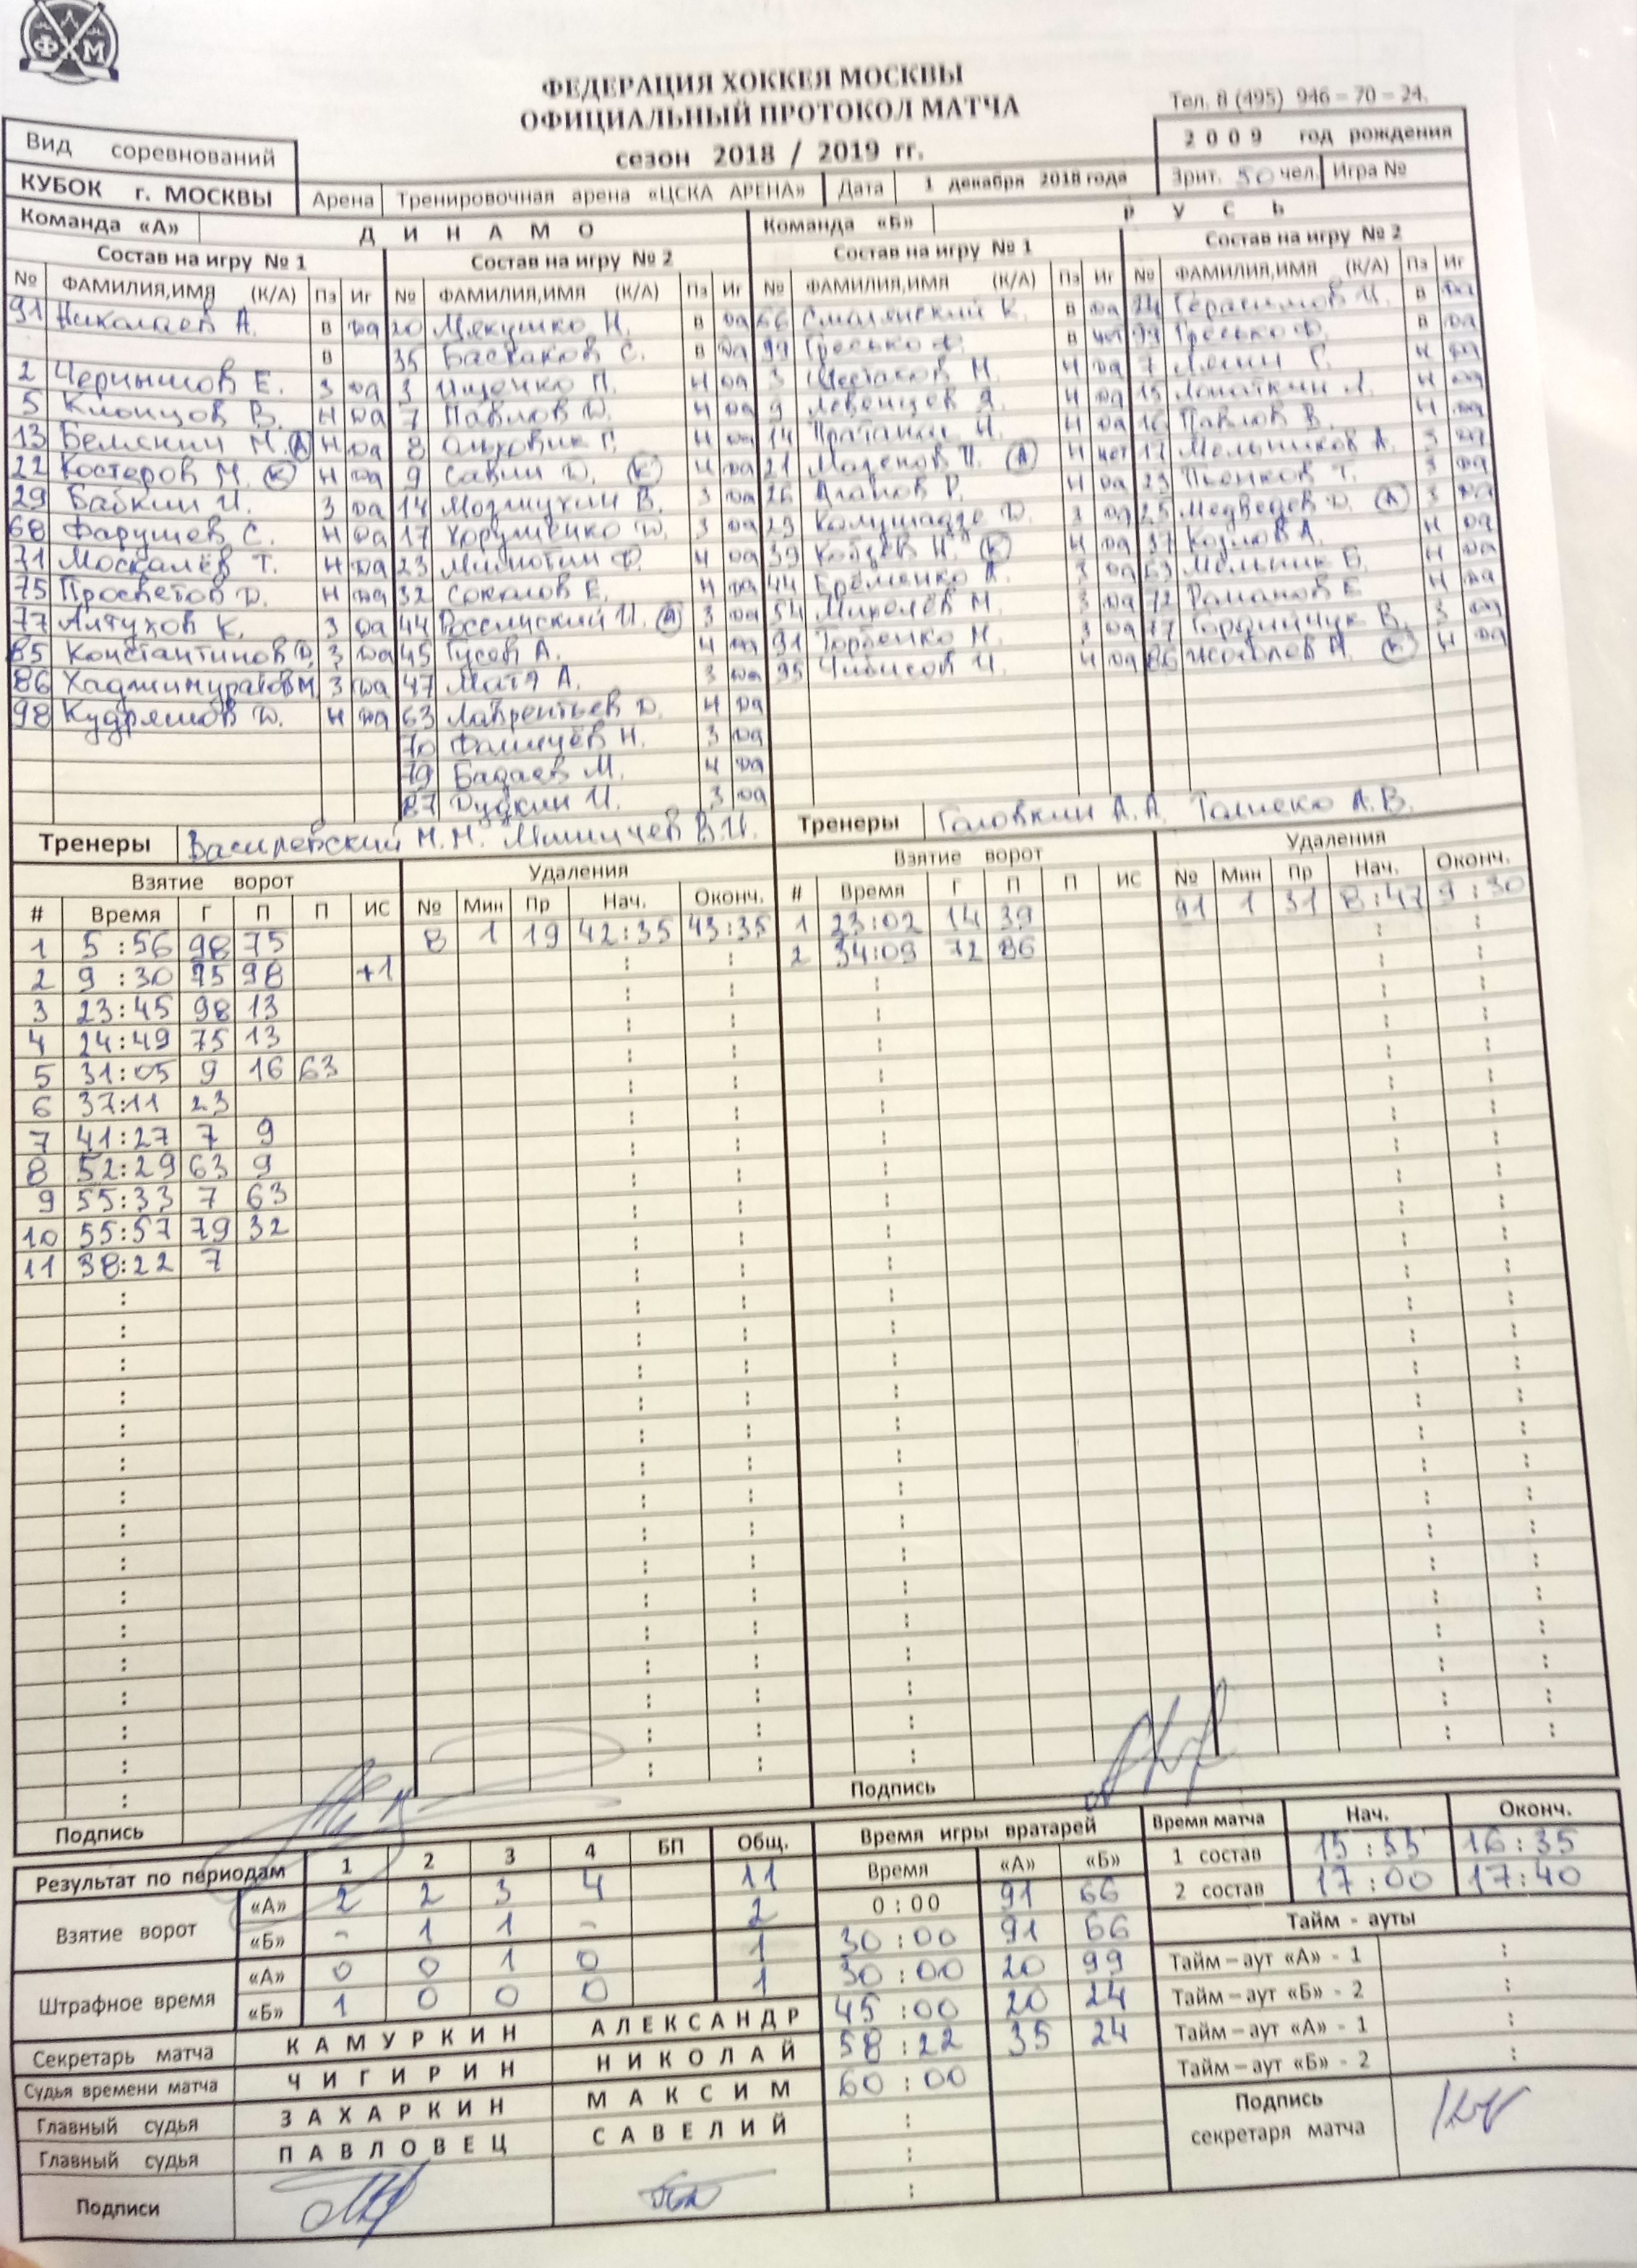 ФХМ
ФЕДЕРАЦИЯ ХОККЕЯ МОСКВЫ
ОФИЦИАЛЬНЫЙ ПРОТОКОЛ МАТЧА
Тел. 8 (495) 946 – 70 – 24.
сезон 2018 / 2019 гг.
2009 год рождения
Вид соревнований
КУБОК г. МОСКВЫ Арена Тренировочная арена «ЦСКА АРЕНА» Дата 1 декабря 2018 года Зрит. 50 чел. Игра №
Команда «А» ДИНАМО Команда «Б» РУСЬ
Состав на игру № 1 Состав на игру № 2 Состав на игру № 1 Состав на игру № 2
№ ФАМИЛИЯ,ИМЯ (К/А) Пз Иг № ФАМИЛИЯ,ИМЯ (К/А) Пз Иг № ФАМИЛИЯ,ИМЯ (К/А) Пз Иг № ФАМИЛИЯ,ИМЯ (К/А) Пз Иг
91 Николаев А. в да 20 Мякушко Н. в да 66 Смолянский К. в да 24 Герасимов И. в да
в 35 Баскаков С. в да 99 Гресько Ф. в нет 99 Гресько Ф. в да
2 Чернышов Е. З да 3 Ищенко П. Н да 3 Шестаков М. Н да 7 Лямин Г. Н да
5 Клонцов В. Н да 7 Павлов Д. Н да 9 Левенцев Я. Н да 15 Лопаткин Л. Н да
13 Бемский М. (А) Н да 8 Ольховик Г. Н да 14 Н. Н да 16 Павлов В. Н да
22 Костеров М. (К) Н да 9 Савин Д. (К) Н да 21 Мазенов П. (А) Н нет 17 Мельников А. З да
29 Бабкин И. З да 14 Мозжухин В. З да 26 Агапов Р. Н да 23 Пьенков Т. З да
68 Фарушев С. Н да 17 Хорушенко Д. З да 29 Д. З да 25 Медведев Д. (А) З да
71 Москалёв Т. Н да 23 Милютин Ф. Н да 39 Н. (К) Н да 37 Козлов А. Н да
75 Просветов Д. Н да 32 Соколов Е. Н да 44 Ерёменко А. З да 63 Мельник Б. Н да
77 Алтухов К. З да 44 И. (А) З да 54 Михалёв М. З да 72 Романов Е Н да
85 Константинов Д. З да 45 Гусев А. Н да 91 Горбенко М. З да 77 Гордийчук В. З да
86 Хаджимуратов М. З да 47 Матя А. З да 95 Чибисов И. Н да 86 А. (К) Н да
98 Кудряшов Д. Н да 63 Лаврентьев Д. Н да
70 Фомичёв Н. З да
79 Бадаев М. Н да
87 Дудкин И. З да
Тренеры Василевский М.М. В.И. Тренеры Головкин А.А. А.В.
Взятие ворот Удаления Взятие ворот Удаления
# Время Г П П ИС № Мин Пр Нач. Оконч. # Время Г П П ИС № Мин Пр Нач. Оконч.
1 5:56 98 75 8 1 19 42:35 43:35 1 23:02 14 39 91 1 31 8:47 9:30
2 9:30 75 98 +1 2 34:09 72 86
3 23:45 98 13
4 24:49 75 13
5 31:05 9 16 63
6 37:11 23
7 41:27 7 9
8 52:29 63 9
9 55:33 7 63
10 55:57 79 32
11 38:22 7
Подпись Подпись
Результат по периодам 1 2 3 4 БП Общ. Время игры вратарей Время матча Нач. Оконч.
Взятие ворот «А» 2 2 3 4 11 Время «А» «Б» 1 состав 15:55 16:35
«Б» – 1 1 – 2 0:00 91 66 2 состав 17:00 17:40
30:00 91 66 Тайм - ауты
Штрафное время «А» 0 0 1 0 1 30:00 20 99 Тайм – аут «А» - 1 :
«Б» 1 0 0 0 1 45:00 20 24 Тайм – аут «Б» - 2 :
Секретарь матча КАМУРКИН АЛЕКСАНДР 58:22 35 24 Тайм – аут «А» - 1 :
Судья времени матча ЧИГИРИН НИКОЛАЙ 60:00 Тайм – аут «Б» - 2 :
Главный судья ЗАХАРКИН МАКСИМ
Главный судья ПАВЛОВЕЦ САВЕЛИЙ
Подпись секретаря матча
Подписи